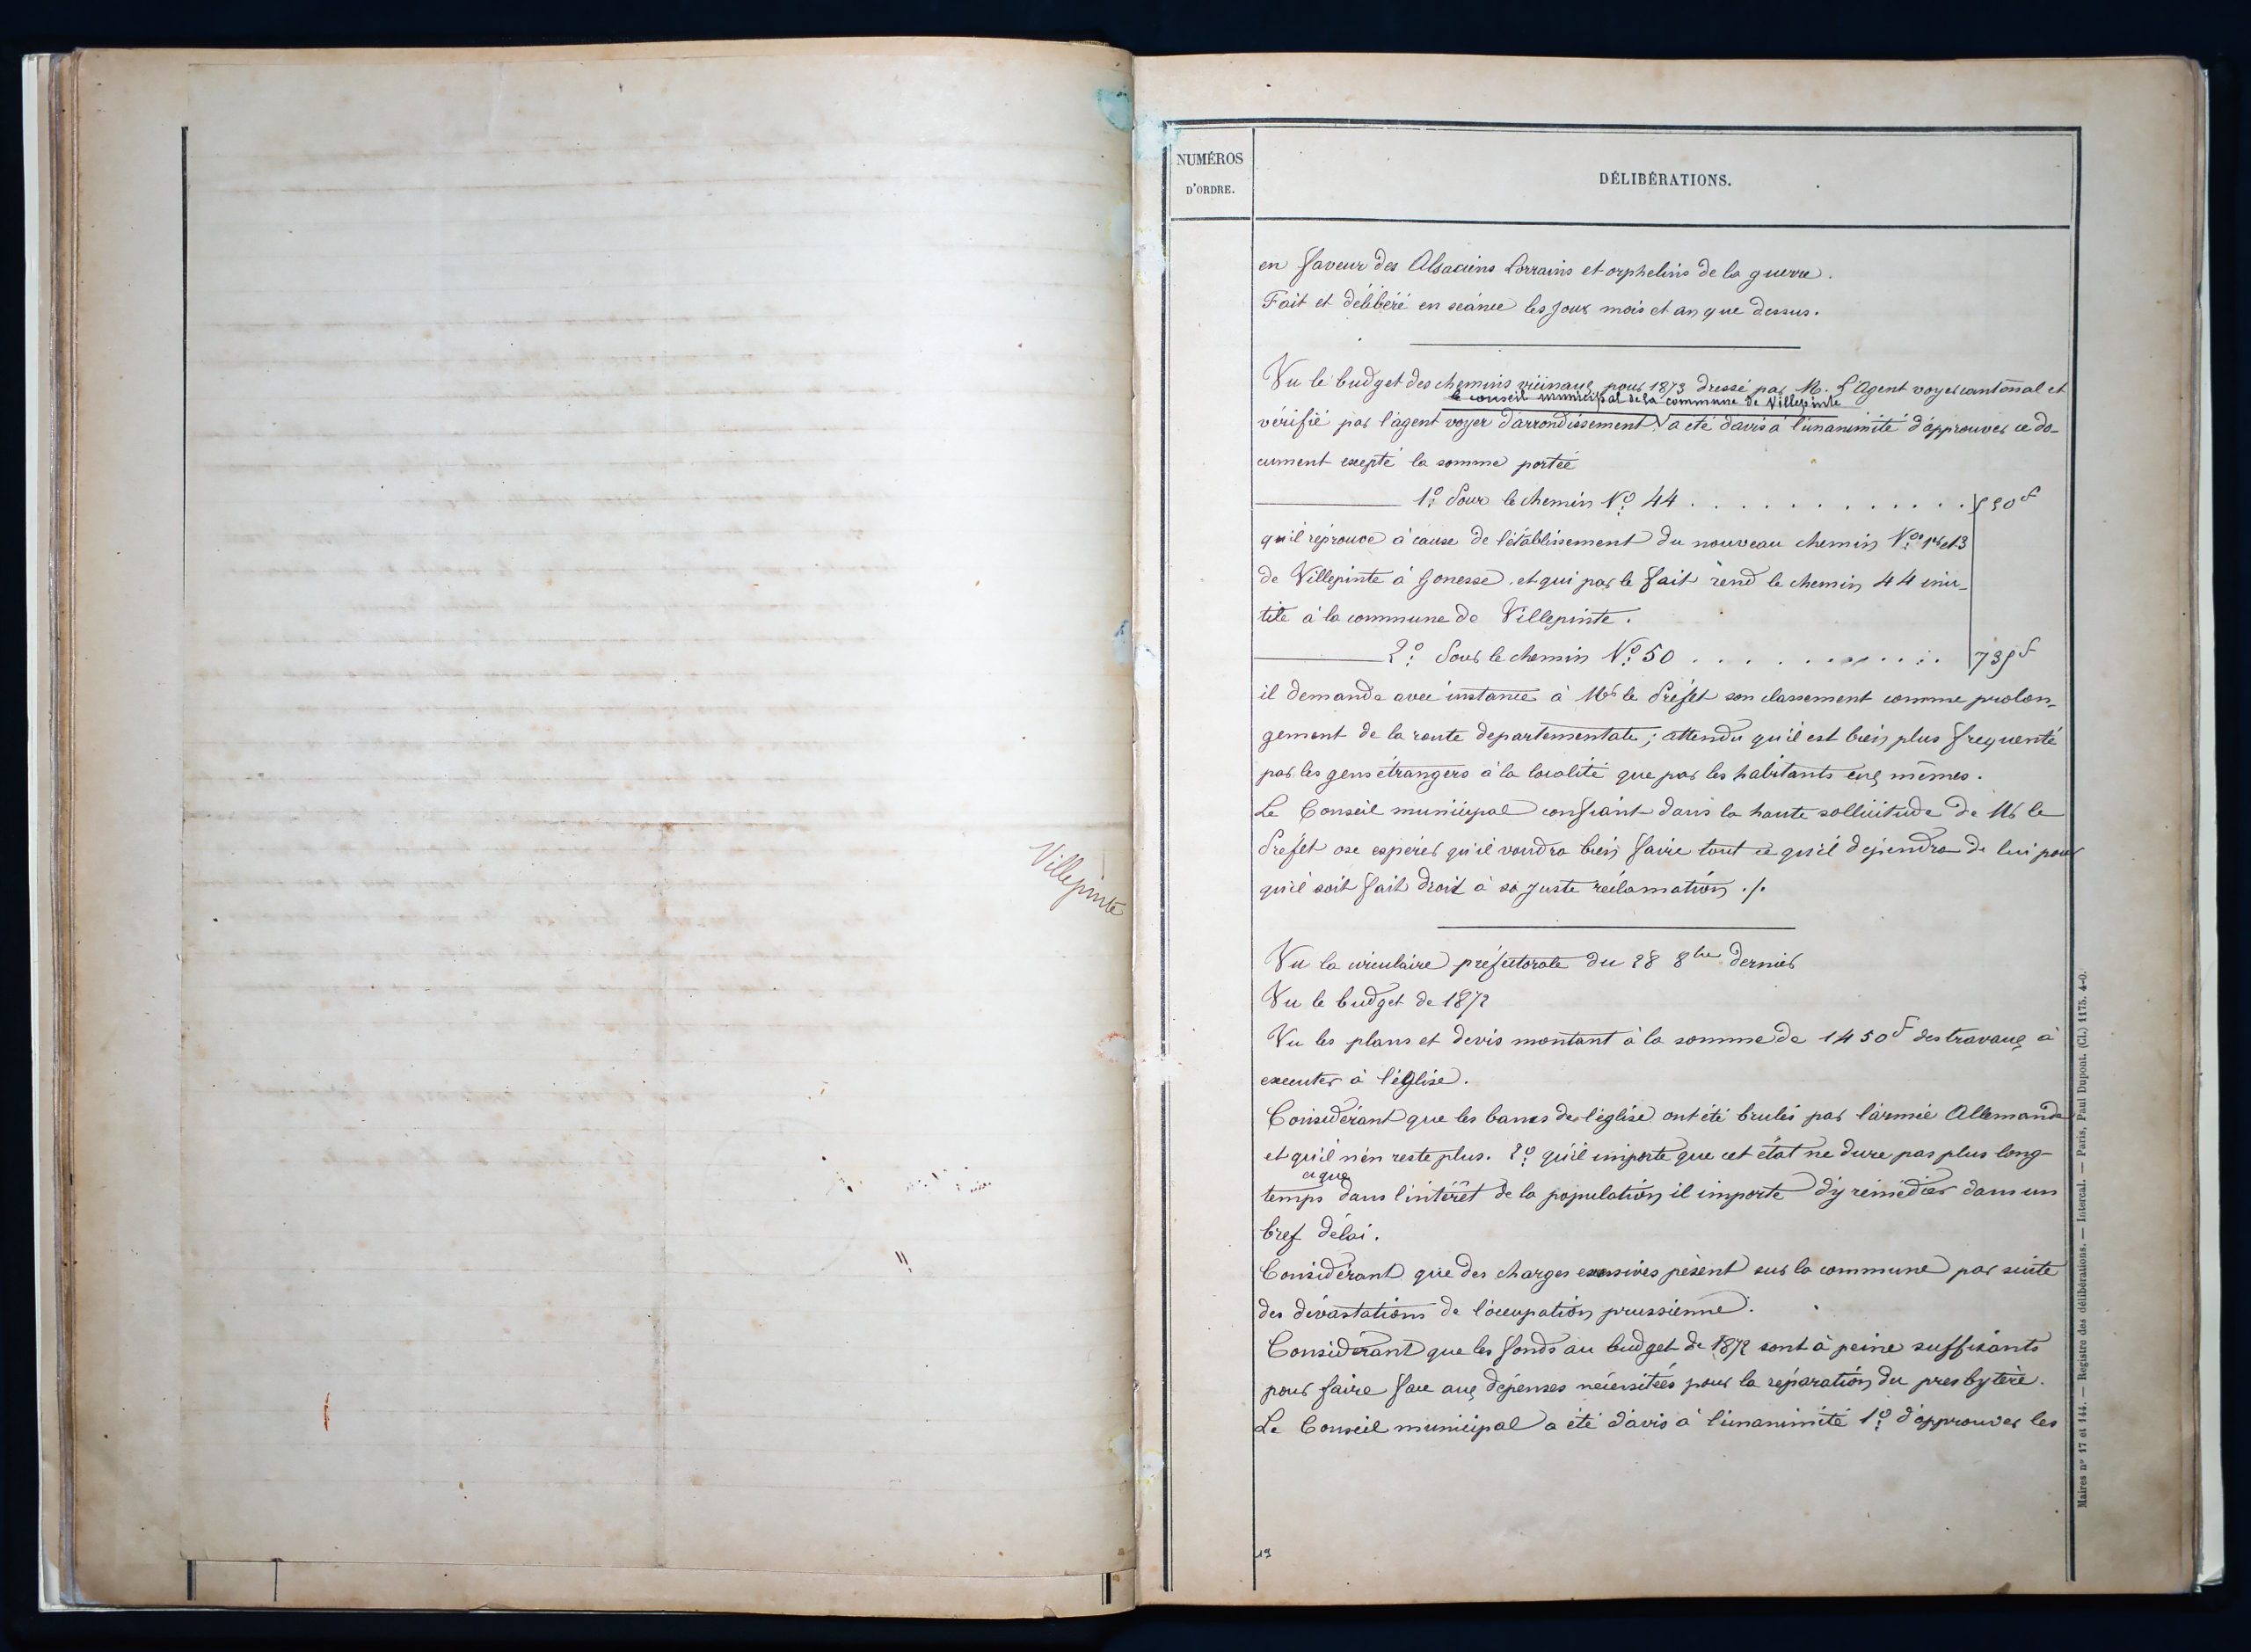 Villepinte
NUMÉROS
D'ORDRE.
DÉLIBÉRATIONS.
en faveur des Alsaciens Lorrains et orphelins de la guerre.
Fait et délibéré en séance les jour mois et an que dessus.
Vu le budget des chemins vicinaux pour 1873 dressé par M. L'Agent voyer cantonnal et
le conseil municipal de la commune de Villepinte
vérifié par l'agent voyer d'arrondissement a été d'avis à l'unanimité d'approuver ce do-
cument excepté la somme portée
1º Pour le chemin Nº 44 . . . . . . . . . . . . . 550f
qu'il réprouve à cause de l'établissement du nouveau chemin Nos 14 et 3
de Villepinte à Gonesse. et qui par le fait rend le chemin 44 inu-
tile à la commune de Villepinte.
2º Pour le chemin Nº 50 . . . . . . . . . . . . 735f
il demande avec instance à Mr le Préfet son classement comme prolon-
gement de la route departementale; attendu qu'il est bien plus frequenté
par les gens étrangers à la localité que par les habitants eux mêmes.
Le Conseil municipal confiant dans la haute sollicitude de Mr le
Préfet ose espérer qu'il voudra bien faire tout ce qu'il dépendra de lui pour
qu'il soit fait droit à sa juste réclamation ./.
Vu la circulaire préfectorale du 28 8bre dernier
Vu le budget de 1872
Vu les plans et devis montant à la somme de 1450f des travaux à
executer à l'église.
Considérant que les bancs de l'église ont été brulés par l'armée Allemande
et qu'il n'en reste plus. 2º qu'il importe que cet état ne dure pas plus long-
et que
temps dans l'intérêt de la population il importe d'y remédier dans un
bref délai.
Considérant que des charges excessives pèsent sur la commune par suite
des dévastations de l'occupation prussienne.
Considérant que les fonds au budget de 1872 sont à peine suffisants
pour faire face aux dépenses nécessitées pour la réparation du presbytère.
Le Conseil municipal a été d'avis à l'unanimité 1º d'approuver les
19
Maires nos 17 et 144. — Registre des délibérations. — Intercal. — Paris, Paul Dupont. (Cl.) 1175. 4-0.